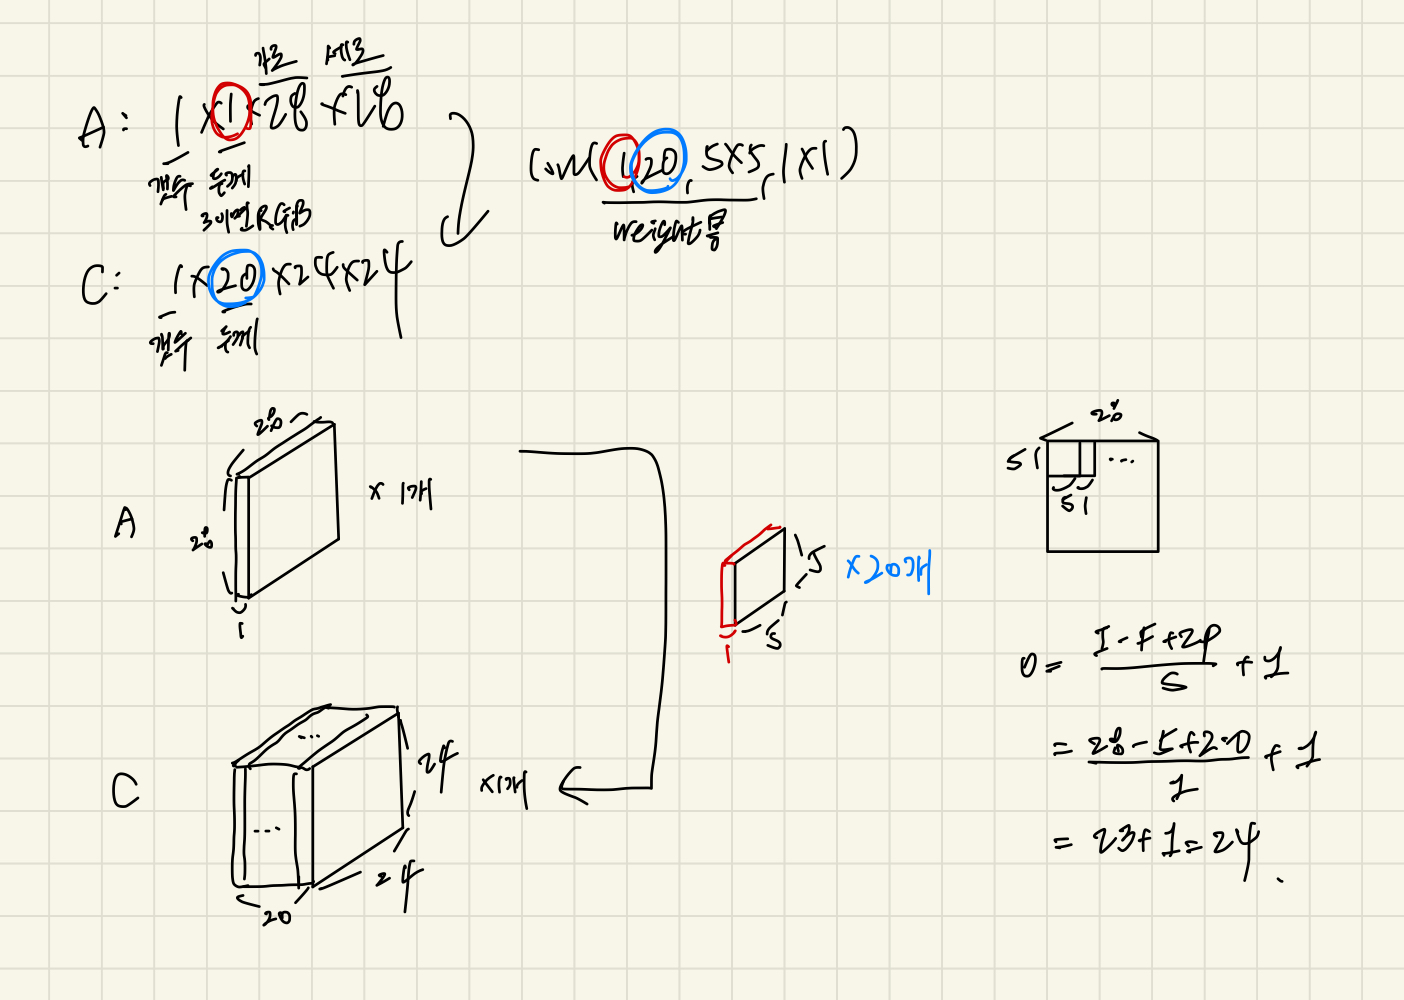 가로 세로
A: 1×1×28×28
갯수 두께
3이면 RGB
Conv(1,20, 5×5, 1×1)
weight
C: 1×20×24×24
갯수 두께
28
28
A
1
× 1개
5
5
1
×20개
28
5 1 ...
5 1
C
...
...
24
24
20
×1개
O = I-F+2P / S + 1
= 28-5+2·0 / 1 + 1
= 23+1=24.